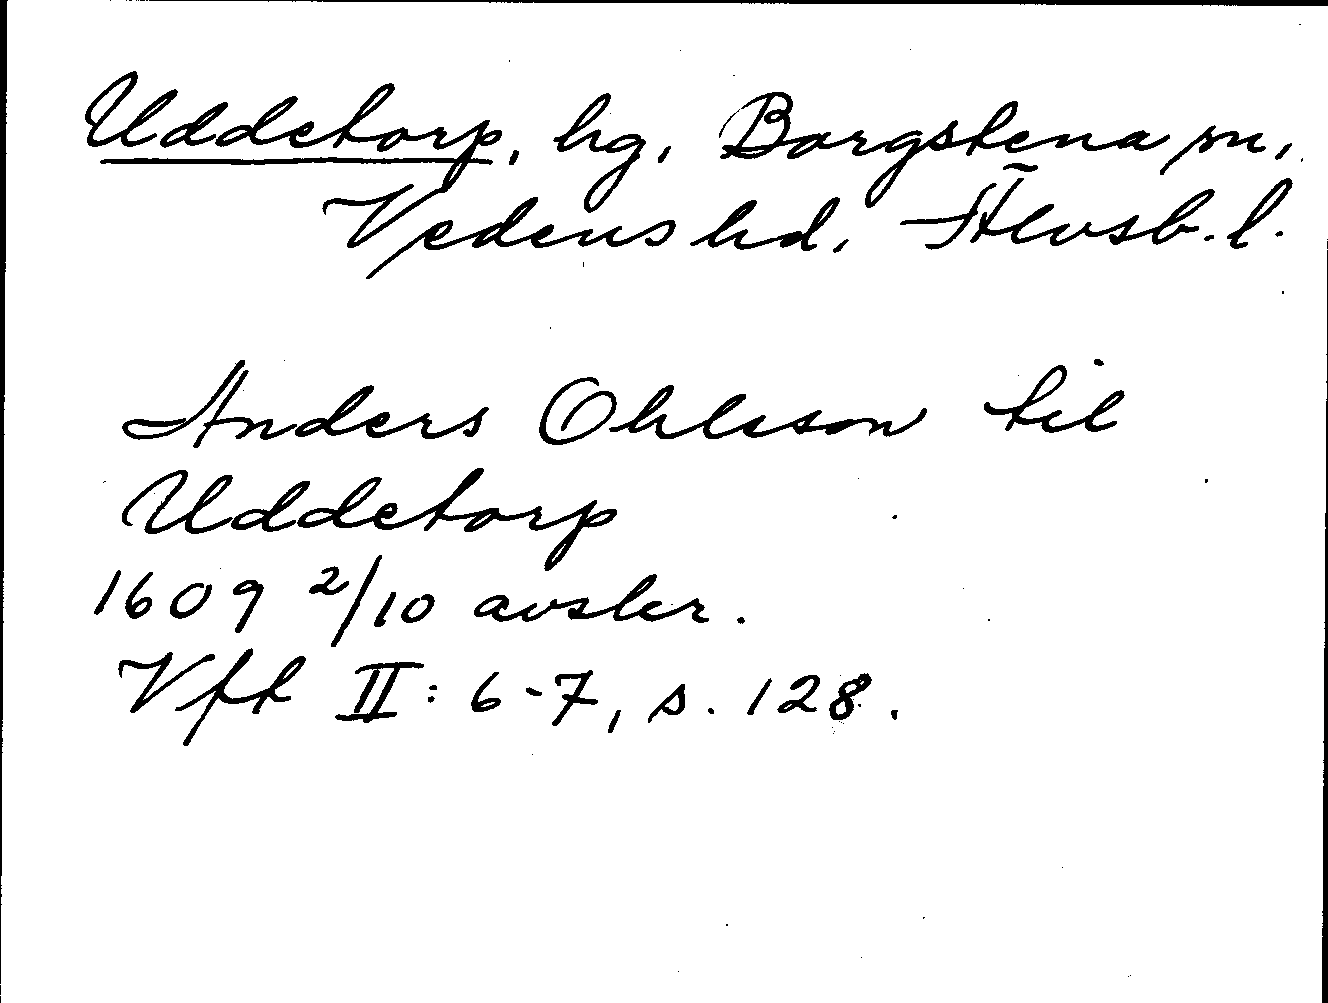 Uddetorp, hg, Borgstena sn,
Vedens hd, Älvsb. l.
Anders Ohlsson til
Uddetorp
1609 2/10 avskr.
Vft II: 6-7, s. 128.